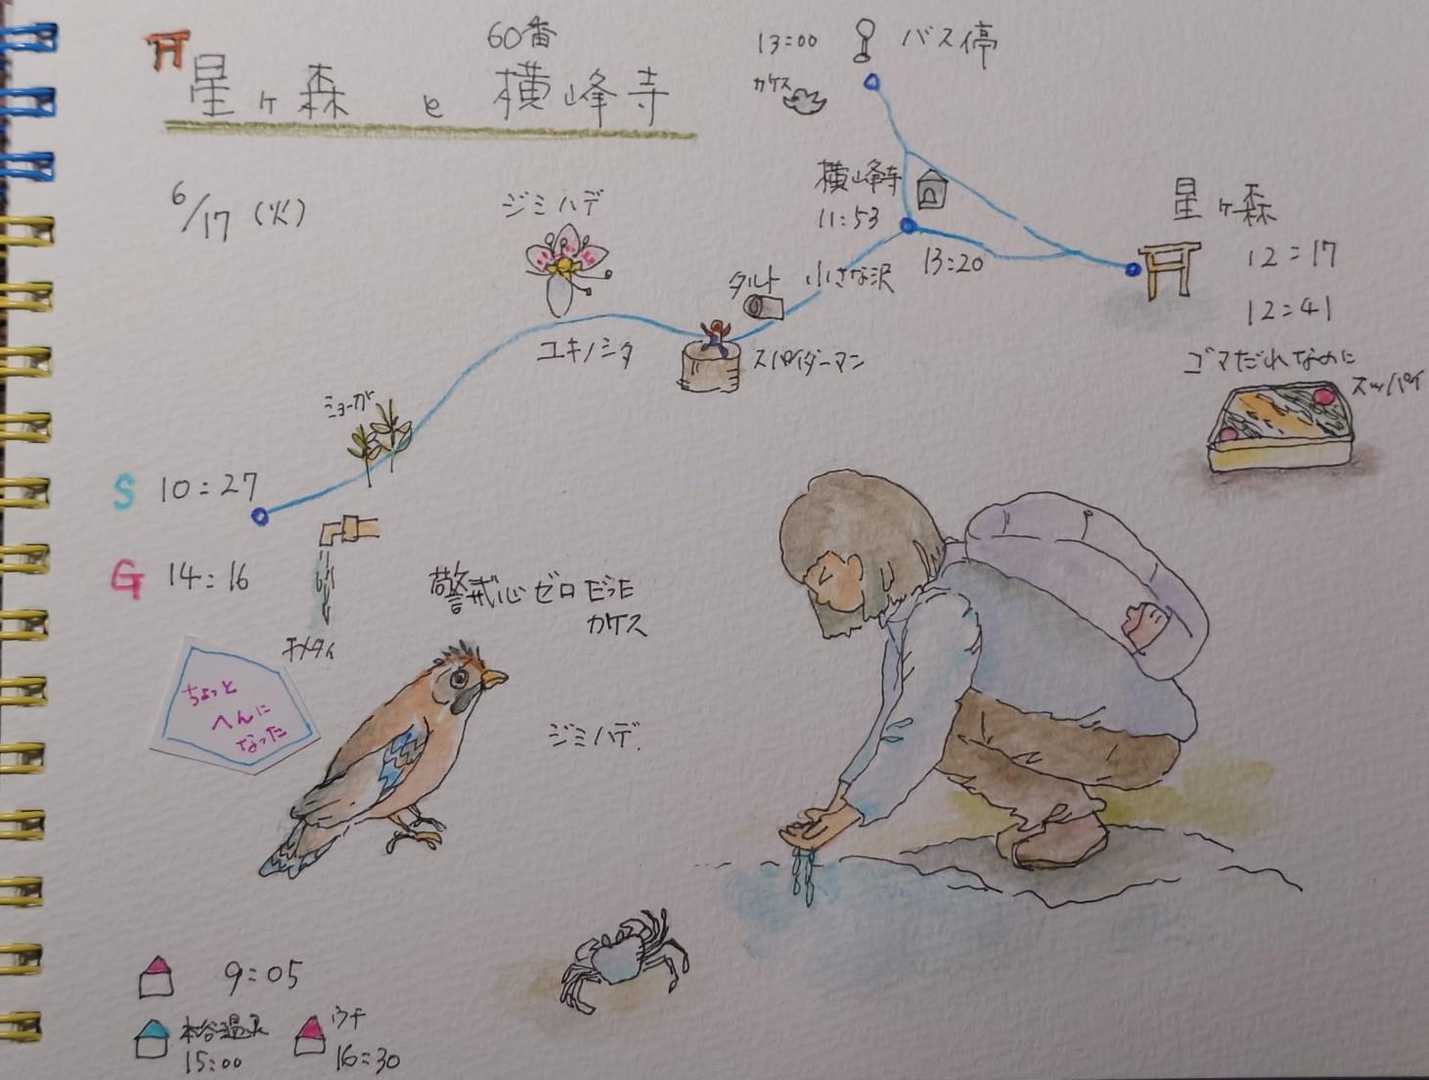 60番
星ヶ森 と 横峰寺
6/17 (火)
13:00 バス停
カケス
横峰寺
11:53
13:20
星ヶ森
12:17
12:41
ゴマだれなのに
スッパイ
ジミハデ
ユキノシタ
タルト 小さな沢
スパイダーマン
ミョーガ
S 10:27
G 14:16
チメタイ
警戒心ゼロだった
カケス
ちょっと
へんに
なった
ジミハデ.
9:05
本谷温泉
15:00
ウチ
16:30